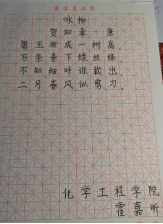 咏柳
贺知章·唐
碧玉妆成一树高
万条垂下绿丝绦
不知细叶谁裁出
二月春风似剪刀
化学工程学院
霍嘉昕